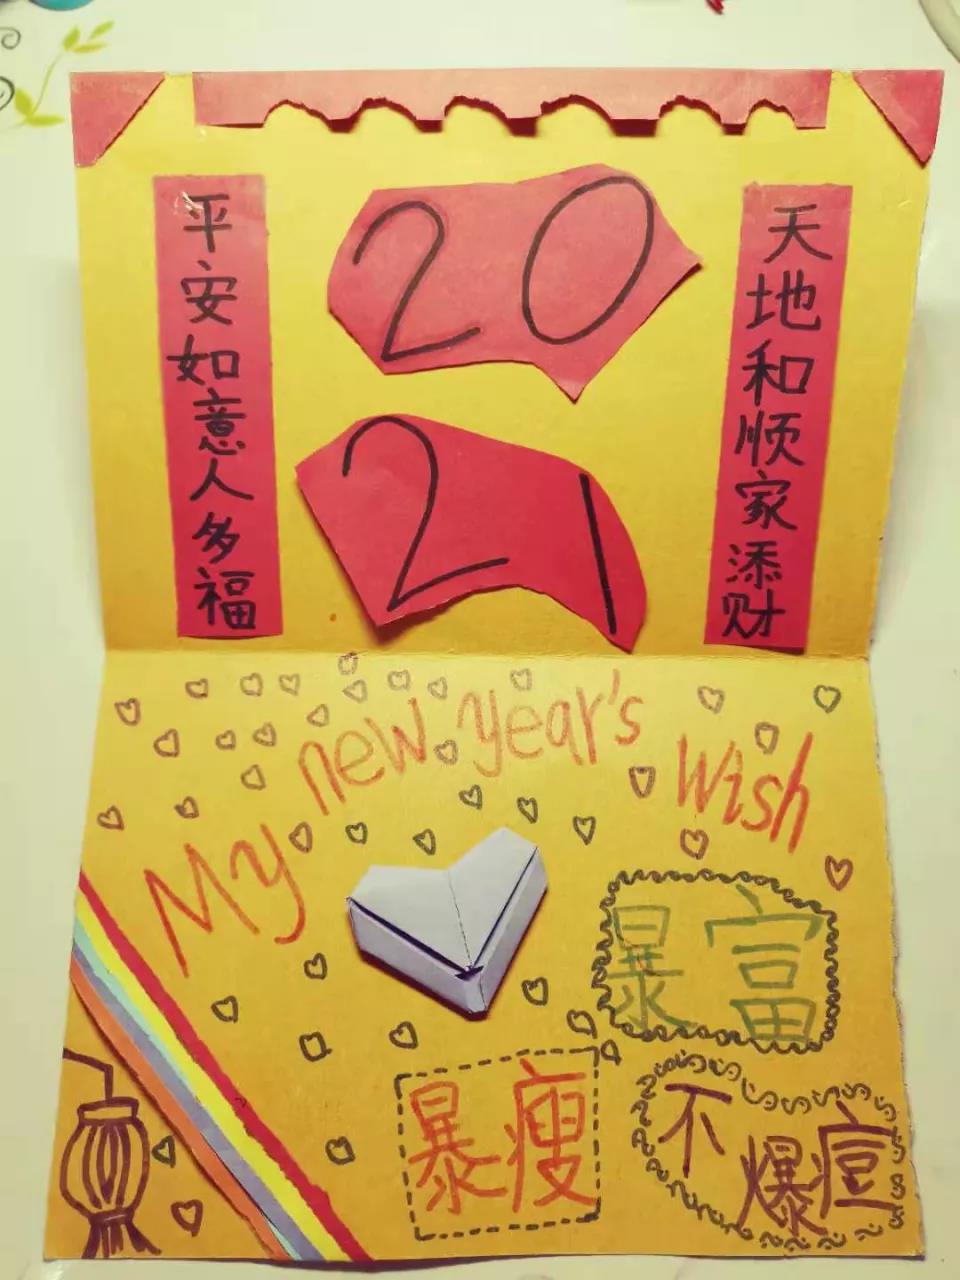 天地和顺家添财
平安如意人多福
20
21
My new year's wish
暴富
暴瘦
不爆痘